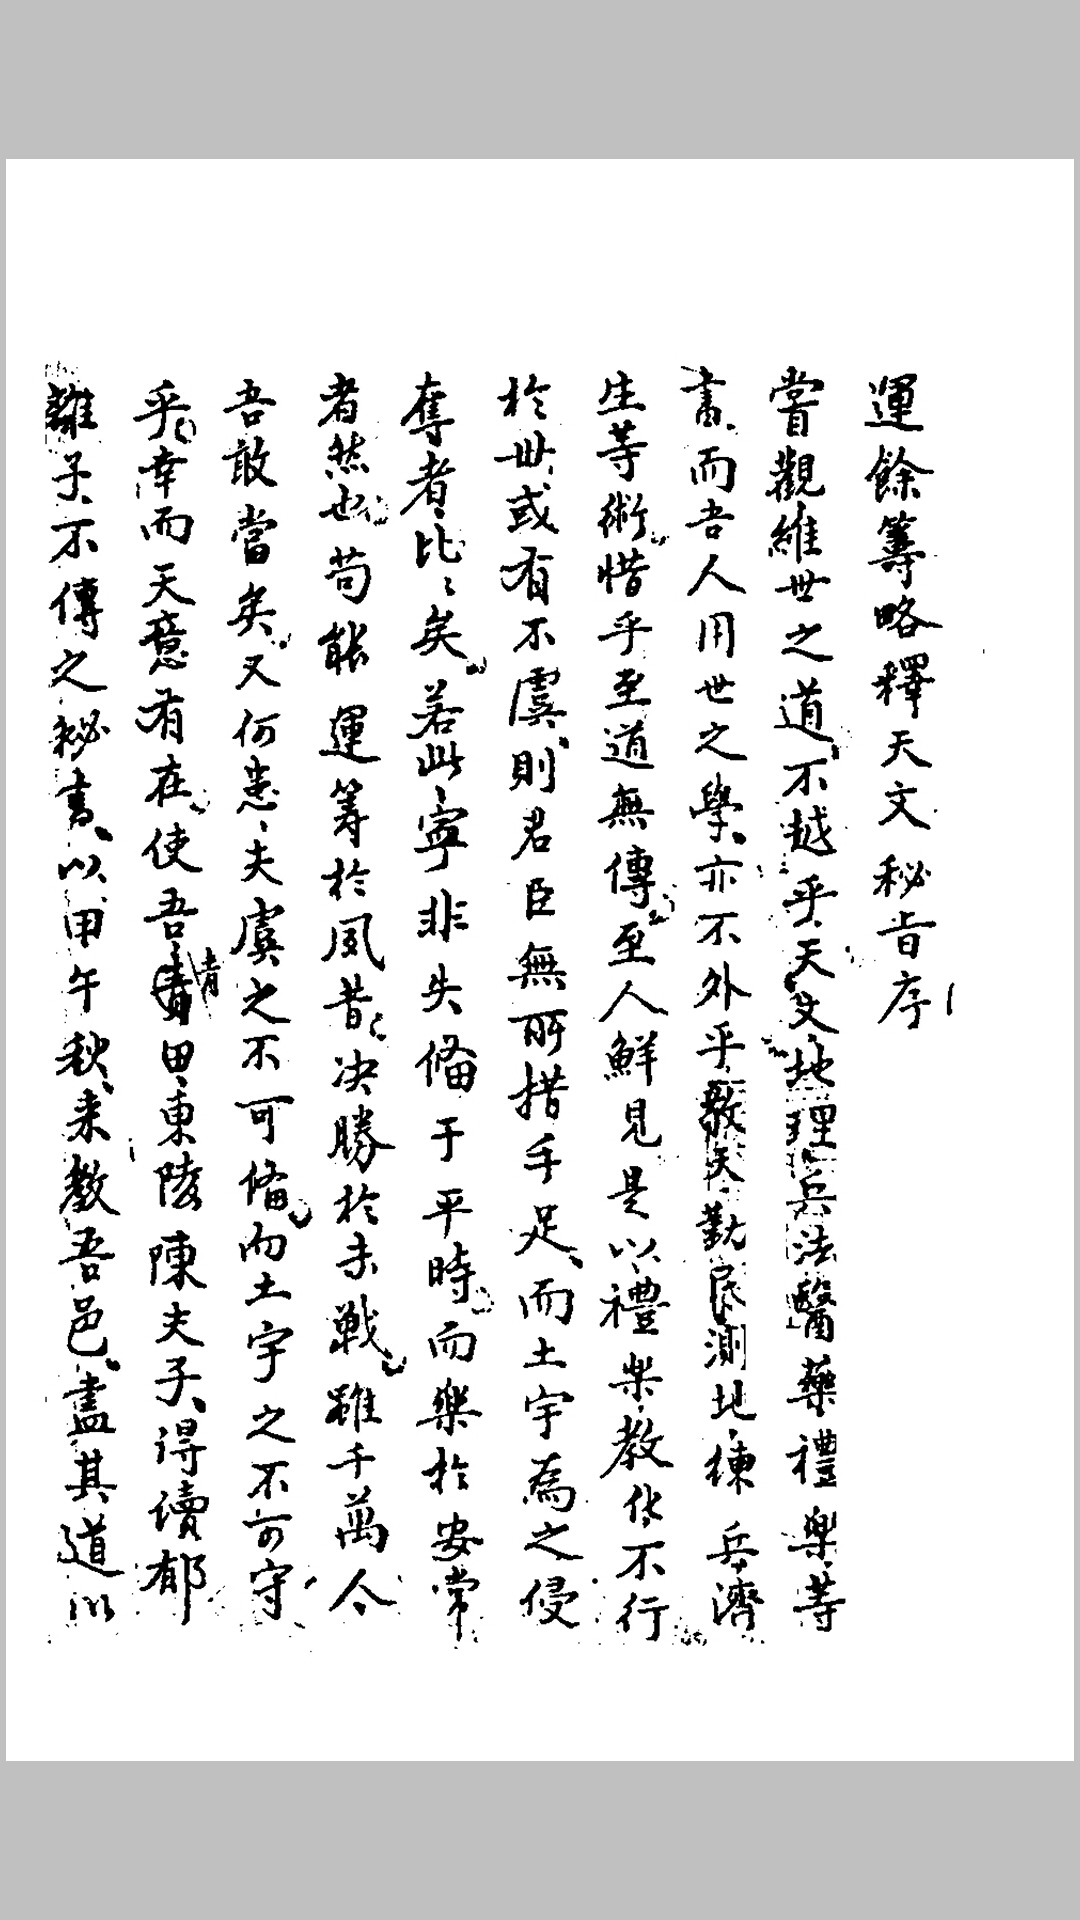 運餘籌略釋天文秘旨序
嘗觀維世之道不越乎天文地理兵法醫藥禮樂等
書而吾人用世之學亦不外乎敬天勤民測地揀兵濟
生等術惜乎至道無傳至人鮮見是以禮樂教化不行
於世或有不虞則君臣無所措手足而土宇為之侵
奪者比〻矣若此寧非失俻于平時而樂於安常
者然也苟能運筹於夙昔决勝於未戦雖千萬人
吾敢當矣又何患夫虞之不可俻而土宇之不可守
乎幸而天意有在使吾青田東陵陳夫子得讀郁
離子不傳之秘書以甲午秋来教吾邑盡其道以